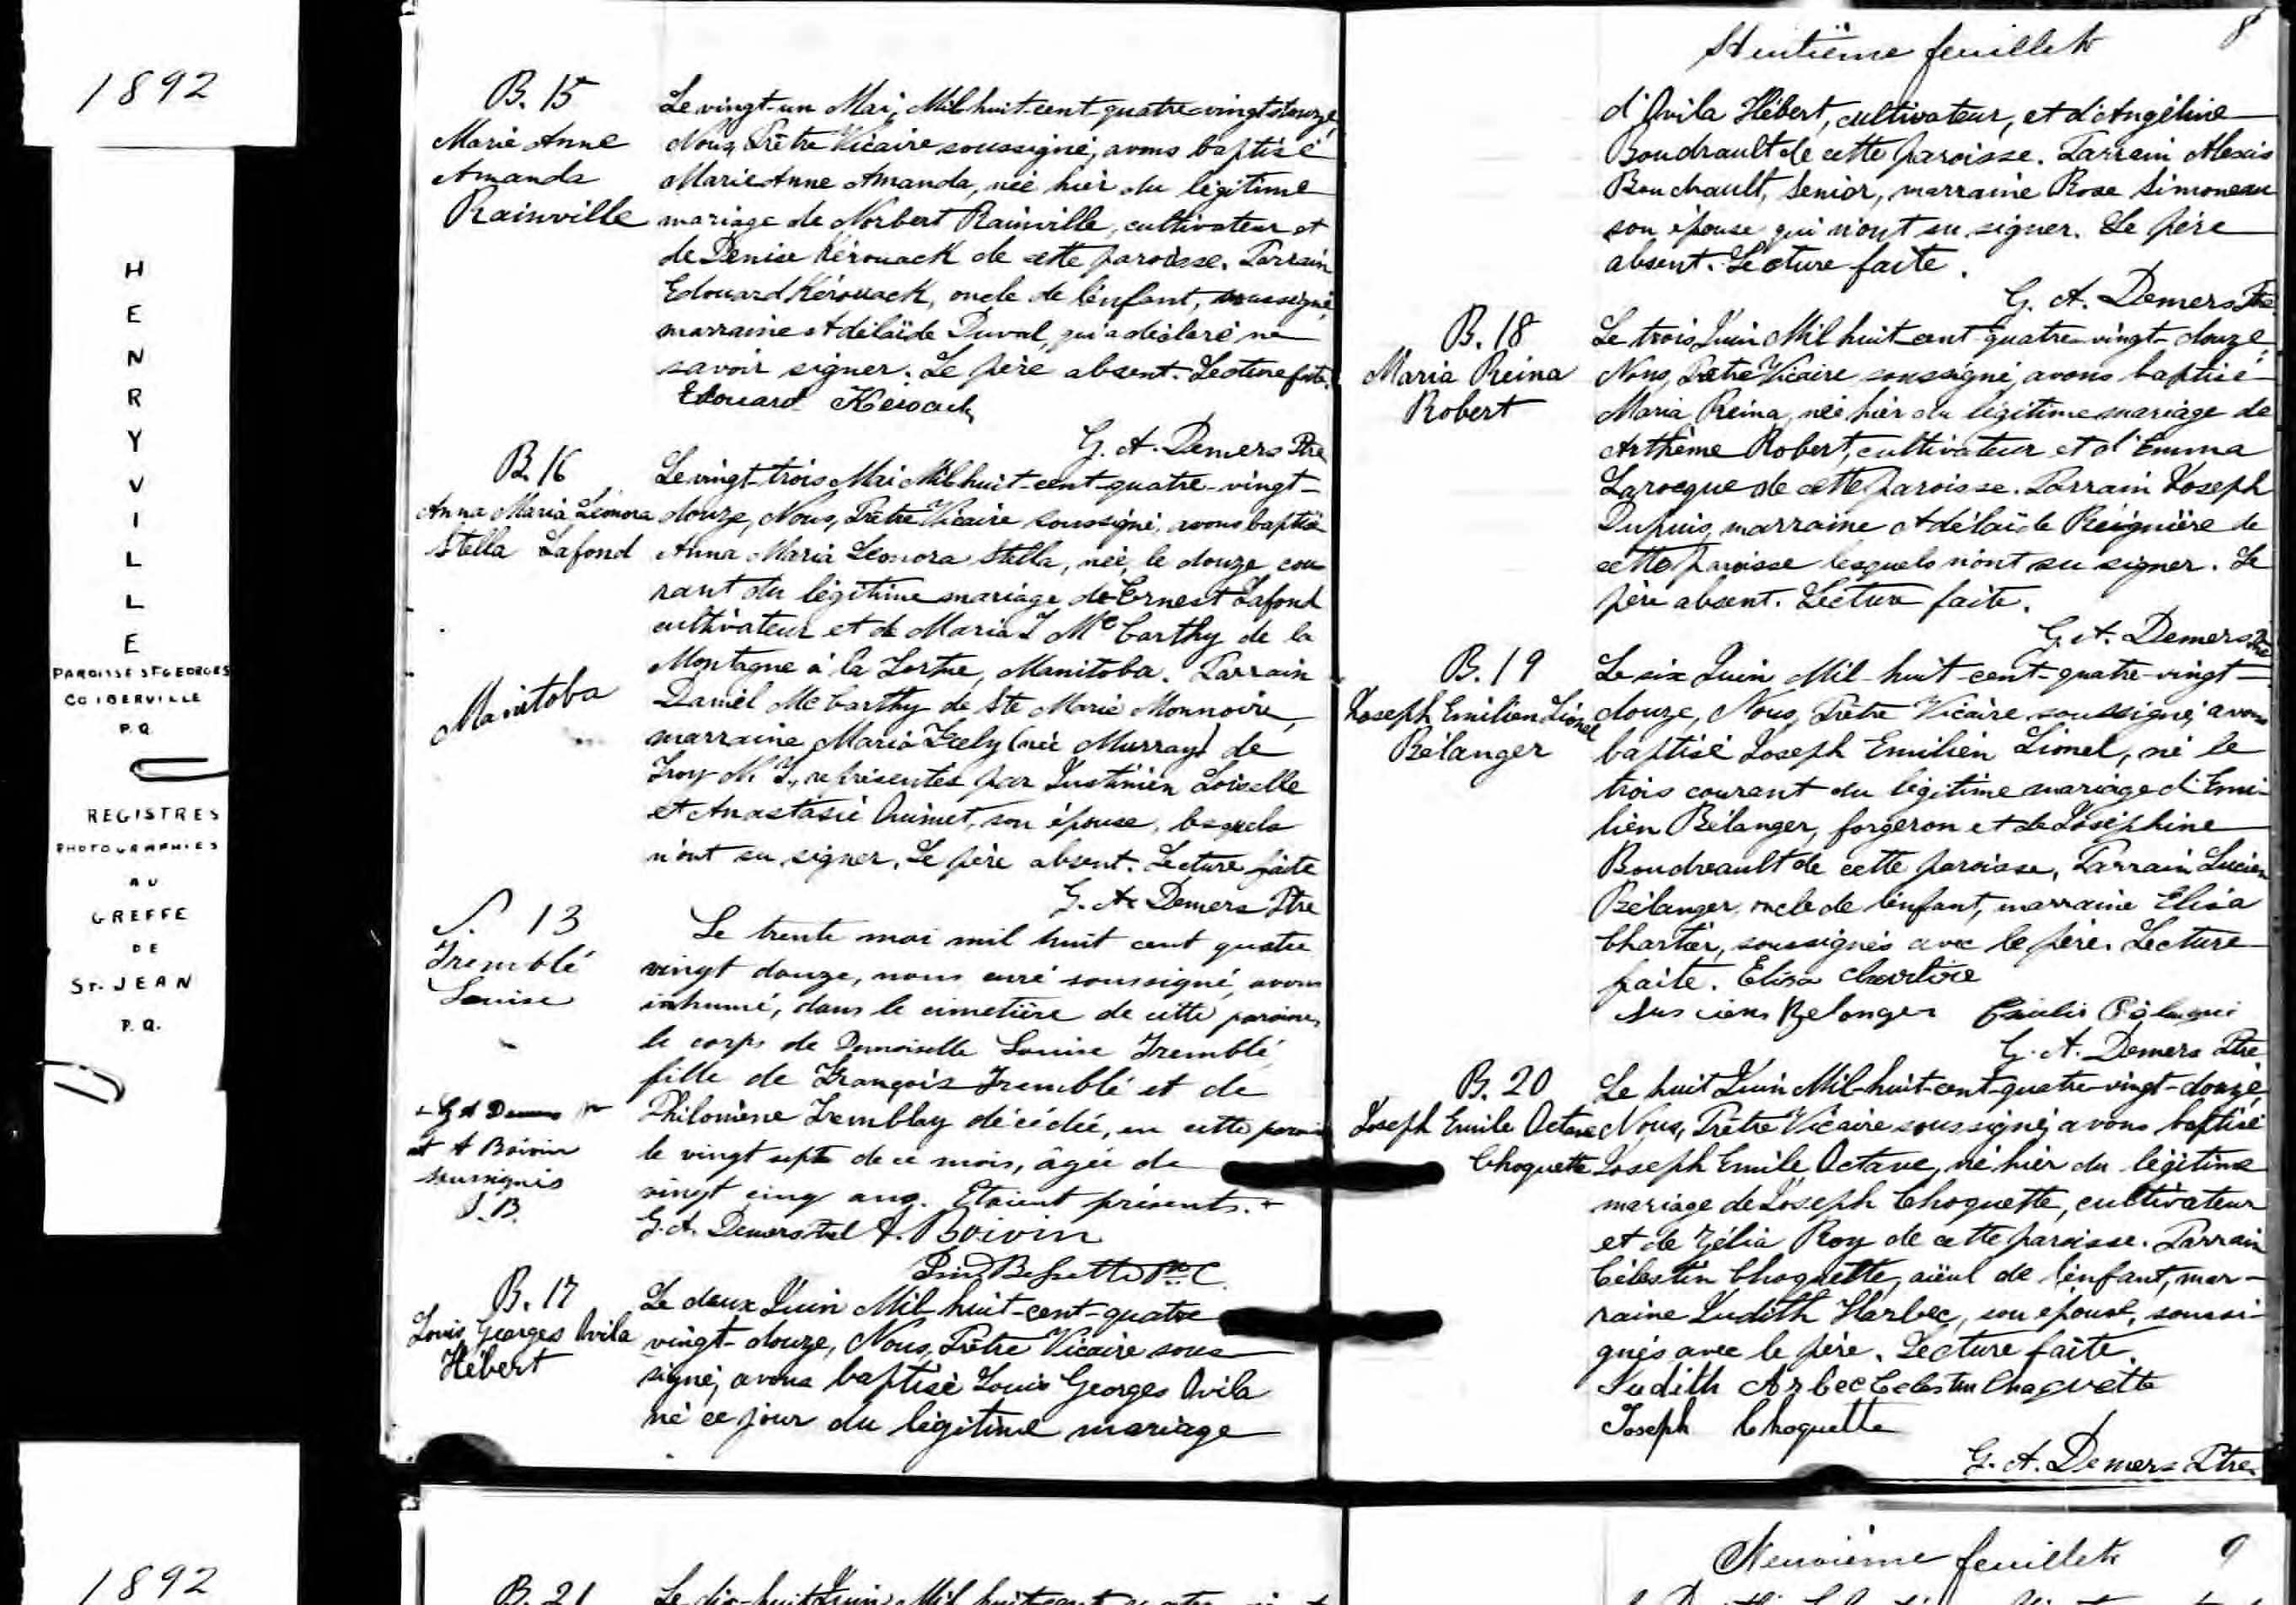 1892
HENRYVILLE
PAROISSE ST GEORGES
CO IBERVILLE
P.Q.
REGISTRES
PHOTOGRAPHIES
AU
GREFFE
DE
ST. JEAN
P.Q.
1892
B. 15
Marie Anne
Amanda
Rainville
Le vingt-un Mai, Mil huit-cent-quatre-vingt-douze,
Nous, Prêtre Vicaire soussigné, avons baptisé
Marie Anne Amanda, née hier du légitime
mariage de Norbert Rainville, cultivateur et
de Denise Kérouack de cette paroisse. Parrain
Edouard Kérouack, oncle de l'enfant, soussigné,
marraine Adélaïde Duval, qui a déclaré ne
savoir signer. Le père absent. Lecture faite.
Edouard Keroack
G. A. Demers Ptre
B. 16
Anna Maria Léonora
Stella Lafond
Manitoba
Le vingt-trois Mai Mil huit-cent-quatre-vingt-
douze, Nous, Prêtre Vicaire soussigné, avons baptisé
Anna Maria Léonora Stella, née, le douze cou
rant du légitime mariage de Ernest Lafond
cultivateur et de Maria J Mc Carthy de la
Montagne à la Tortue, Manitoba. Parrain
Daniel Mc Carthy de Ste Marie Monnoire,
marraine Maria (née Murray) de
Troy N. Y., représentés par Justinien Loiselle
et Anastasie Ouimet, son épouse, lesquels
n'ont su signer. Le père absent. Lecture faite
G. A. Demers Ptre
S. 13
Tremblé
Louise
Le trente mai mil huit cent quatre
vingt douze, nous curé soussigné, avons
inhumé, dans le cimetière de cette paroisse,
le corps de Demoiselle Louise Tremblé,
fille de François Tremblé et de
Philomène Tremblay décédée, en cette paroisse
le vingt sept de ce mois, âgée de
vingt cinq ans. Etaient présents. +
+ G A Demers ptr
et A Boivin
soussignés
J.B.
G. A. Demers Ptre A. Boivin
Bessette Ptre C.
B. 17
Louis Georges Ovila
Hébert
Le deux Juin Mil huit-cent-quatre
vingt-douze, Nous, Prêtre Vicaire sous
signé, avons baptisé Louis Georges Ovila
né ce jour du légitime mariage
Huitième feuillet 8
d'Ovila Hébert, cultivateur, et d'Angéline
Boudrault de cette paroisse. Parrain Alexis
Bouchault, Senior, marraine Rose Simoneau
son épouse qui n'ont su signer. Le père
absent. Lecture faite.
G. A. Demers Ptre
B. 18
Maria Reina
Robert
Le trois Juin Mil huit cent-quatre-vingt-douze,
Nous, Prêtre Vicaire soussigné, avons baptisé
Maria Reina, née hier du légitime mariage de
Arthème Robert, cultivateur et d'Emma
Larocque de cette paroisse. Parrain Joseph
Dupuis, marraine Adélaïde Réignière de
cette paroisse lesquels n'ont su signer. Le
père absent. Lecture faite.
G. A. Demers Ptre
B. 19
Joseph Emilien Lionel
Bélanger
Le six Juin Mil-huit-cent-quatre-vingt-
douze, Nous, Prêtre Vicaire soussigné, avons
baptisé Joseph Emilien Lionel, né le
trois courant du légitime mariage d'Emi-
lien Bélanger, forgeron et de Joséphine
Boudreault de cette paroisse, Parrain Lucien
Bélanger, oncle de l'enfant, marraine Elisa
Chartier, soussignés avec le père. Lecture
faite. Elisa Chartier
Lus iens Belanger
G. A. Demers Ptre
B. 20
Joseph Emile Octave
Choquette
Le huit Juin Mil-huit-cent-quatre-vingt-douze,
Nous, Prêtre Vicaire soussigné, avons baptisé
Joseph Emile Octave, né hier du légitime
mariage de Joseph Choquette, cultivateur
et de Zélia Roy de cette paroisse. Parrain
Célestin Choquette, aïeul de l'enfant, mar-
raine Judith Harbec, son épouse, soussi-
gnés avec le père. Lecture faite.
Judith Arbec Celestin Choquette
Joseph Choquette
G. A. Demers Ptre
B. 21
Le dix-huit Juin Mil huit cent
Neuvième feuillet 9